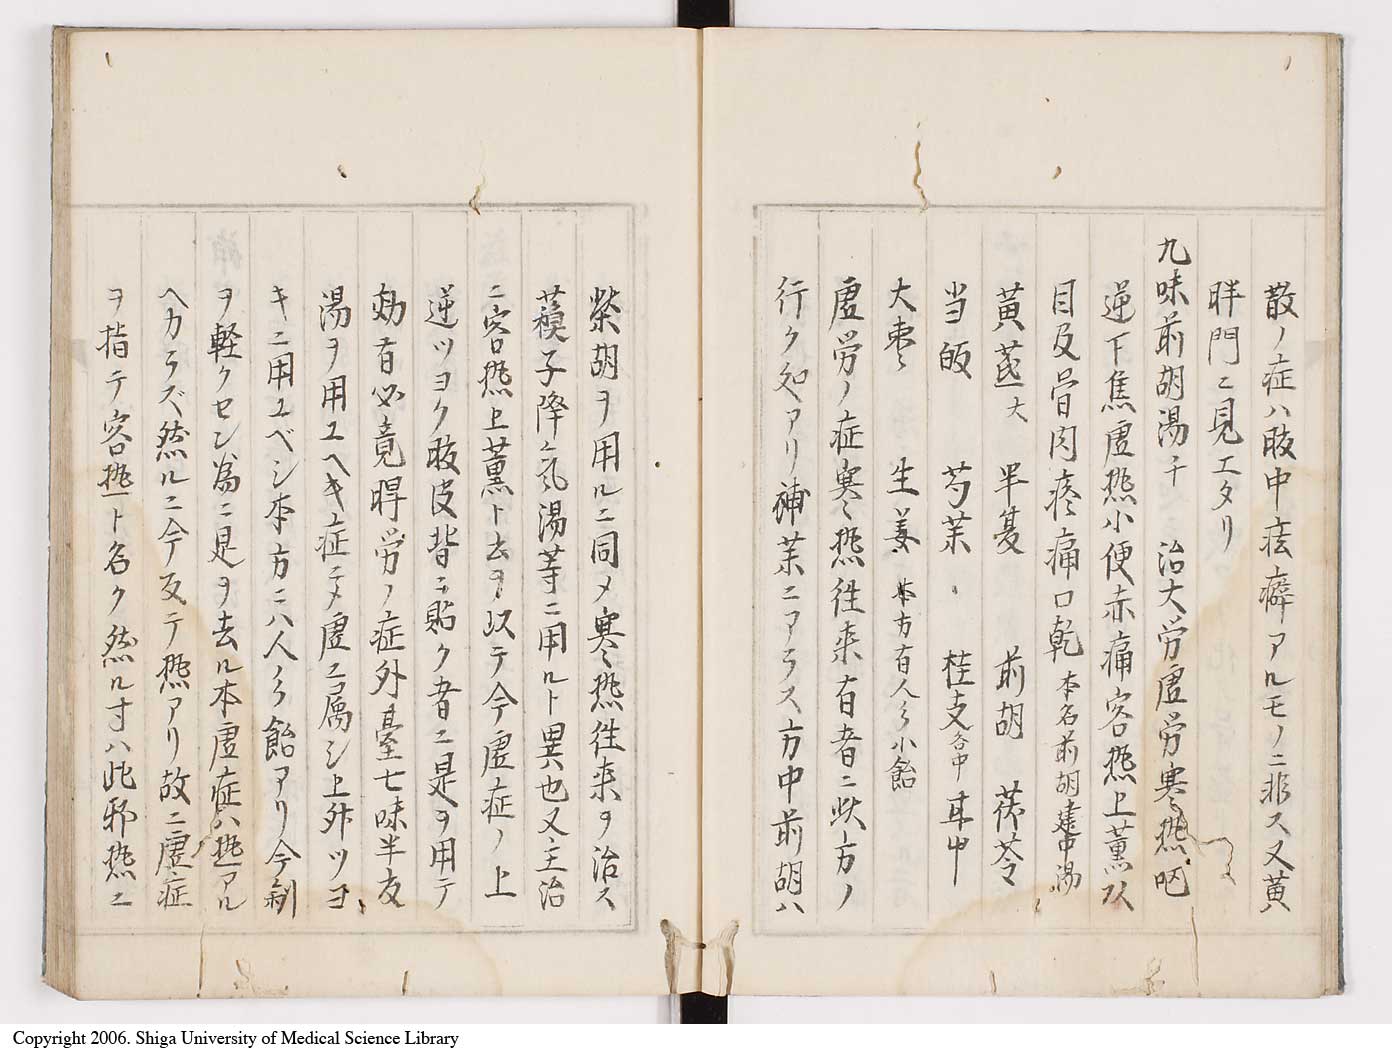 散ノ症ハ肢中痃癖アルモノニ非ス又黄
胖門ニ見エタリ
九味前胡湯千 治大労虚労寒〻熱呕
逆下焦虚熱小便赤痛客熱上薫以
目及骨肉疼痛口乾 本名前胡建中湯
黄茋大 半夏 前胡 茯苓
当皈 芍茱〻 桂支各中 耳中
大棗〻 生姜 本方有人參小飴
虚労ノ症寒〻熱徃来有者ニ此方ノ
行ク処アリ補茱ニアラス方中前胡ハ
柴胡ヲ用ルニ同メ寒〻熱徃来ヲ治ス
蘓子降氣湯等ニ用ルト異也又主治
ニ客熱上薫ト去ヲ以テ今虚症ノ上
逆ツヨク肢皮背ニ貼ク者ニ是ヲ用テ
効有必竟啈労ノ症外臺七味半夜
湯ヲ用ユヘキ症ニテ虚ニ属シ上外ツヨ
キニ用ユベシ本方ニハ人參飴アリ今剤
ヲ軽クセン為ニ是ヲ去ル本虚症ハ熱アル
ヘカラズ然ルニ今反テ熱アリ故ニ虚症
ヲ指テ客熱ト名ク然ル寸ハ此邪熱ニ
Copyright 2006. Shiga University of Medical Science Library